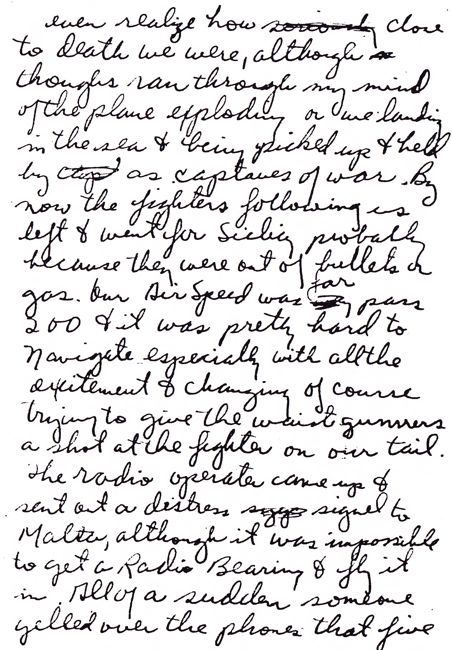 even realize how seriously close
to death we were, although
thoughs ran through my mind
of the plane exploding or we landing
in the sea & being picked up & held
by as captaves of war. By
now the fighters following us
left & went for Sicliy probably
because they were out of bullets or
gas. Our Air Speed was far pass
200 & it was pretty hard to
navigate especially with all the
exitement & changing of course
trying to give the waist gunners
a shot at the fighter on our tail.
The radio operater came up &
sent out a distress signel to
Malta, although it was impossible
to get a Radio Bearing & fly it
in. All of a sudden someone
yelled over the phones that five